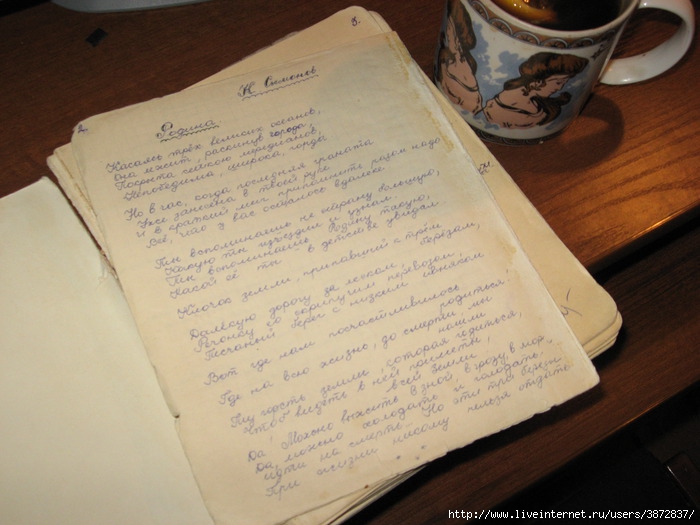 К Симонов
Родина.
Касаясь трёх великих океанов,
Она лежит, раскинув города,
Покрыта сеткою меридианов,
Непобедима, широка, горда
Но в час, когда последняя граната
Уже занесена в твоей руке
И в краткий миг припомнить разом надо
Всё, что у нас осталось вдалеке
Ты вспоминаешь не страну большую,
Какую ты изъездил и узнал
Ты вспоминаешь Родину такую,
Какой её ты в детстве увидал
Клочок земли, припавший к трём
берёзам,
Далёкую дорогу за леском,
Речонку со скрипучим перевозом,
Песчаный берег с низким ивняком
Вот где нам посчастливилось
родиться,
Где на всю жизнь, до смерти, мы
нашли
Ту горсть земли, которая годиться,
Чтоб видеть в ней приметы
всей земли
Да! Можно выжить в зной, в грозу, в мороз
Да, можно голодать и холодать,
Идти на смерть... Но эти три берёзы
При жизни никому нельзя отдать
http://www.liveinternet.ru/users/3872837/